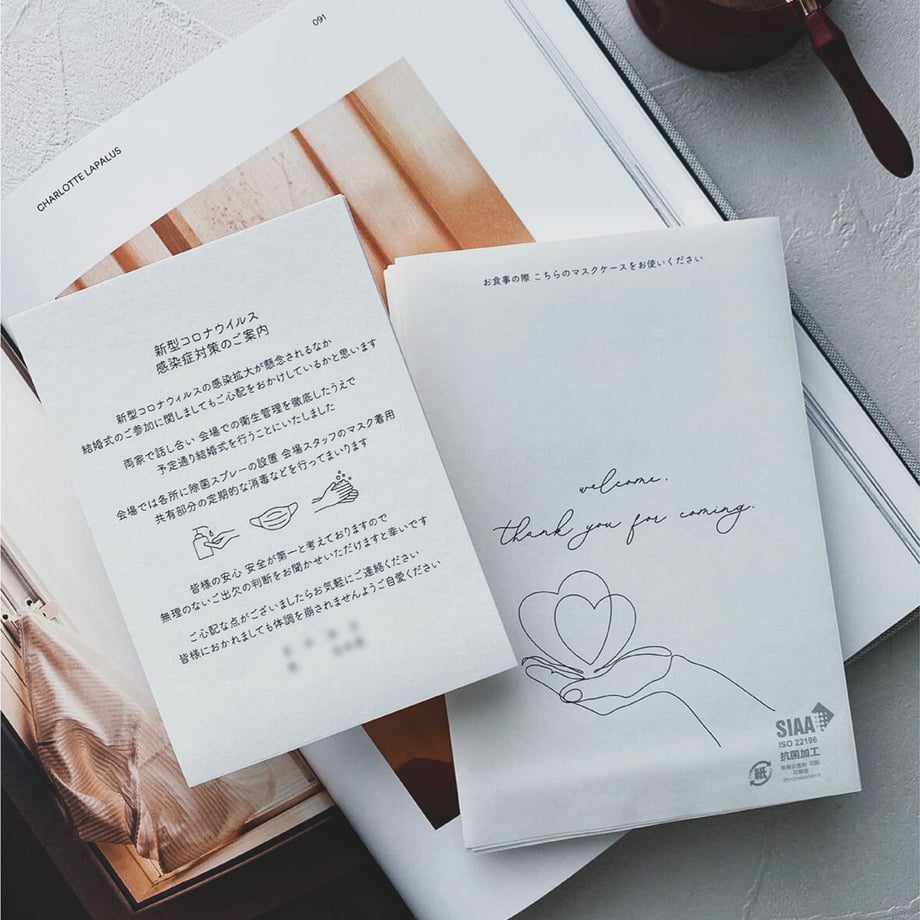 091
CHARLOTTE LAPALUS
新型コロナウイルス
感染症対策のご案内
新型コロナウィルスの感染拡大が懸念されるなか
結婚式のご参加に関しましてもご心配をおかけしているかと思います
両家で話し合い 会場での衛生管理を徹底したうえで
予定通り結婚式を行うことにいたしました
会場では各所に除菌スプレーの設置 会場スタッフのマスク着用
共有部分の定期的な消毒などを行ってまいります
皆様の安心 安全が第一と考えておりますので
無理のないご出欠の判断をお聞かせいただけますと幸いです
ご心配な点がございましたらお気軽にご連絡ください
皆様におかれましても体調を崩されませんようご自愛ください
お食事の際 こちらのマスクケースをお使いください
welcome.
thank you for coming.
SIAA
ISO 22196
抗菌加工
紙